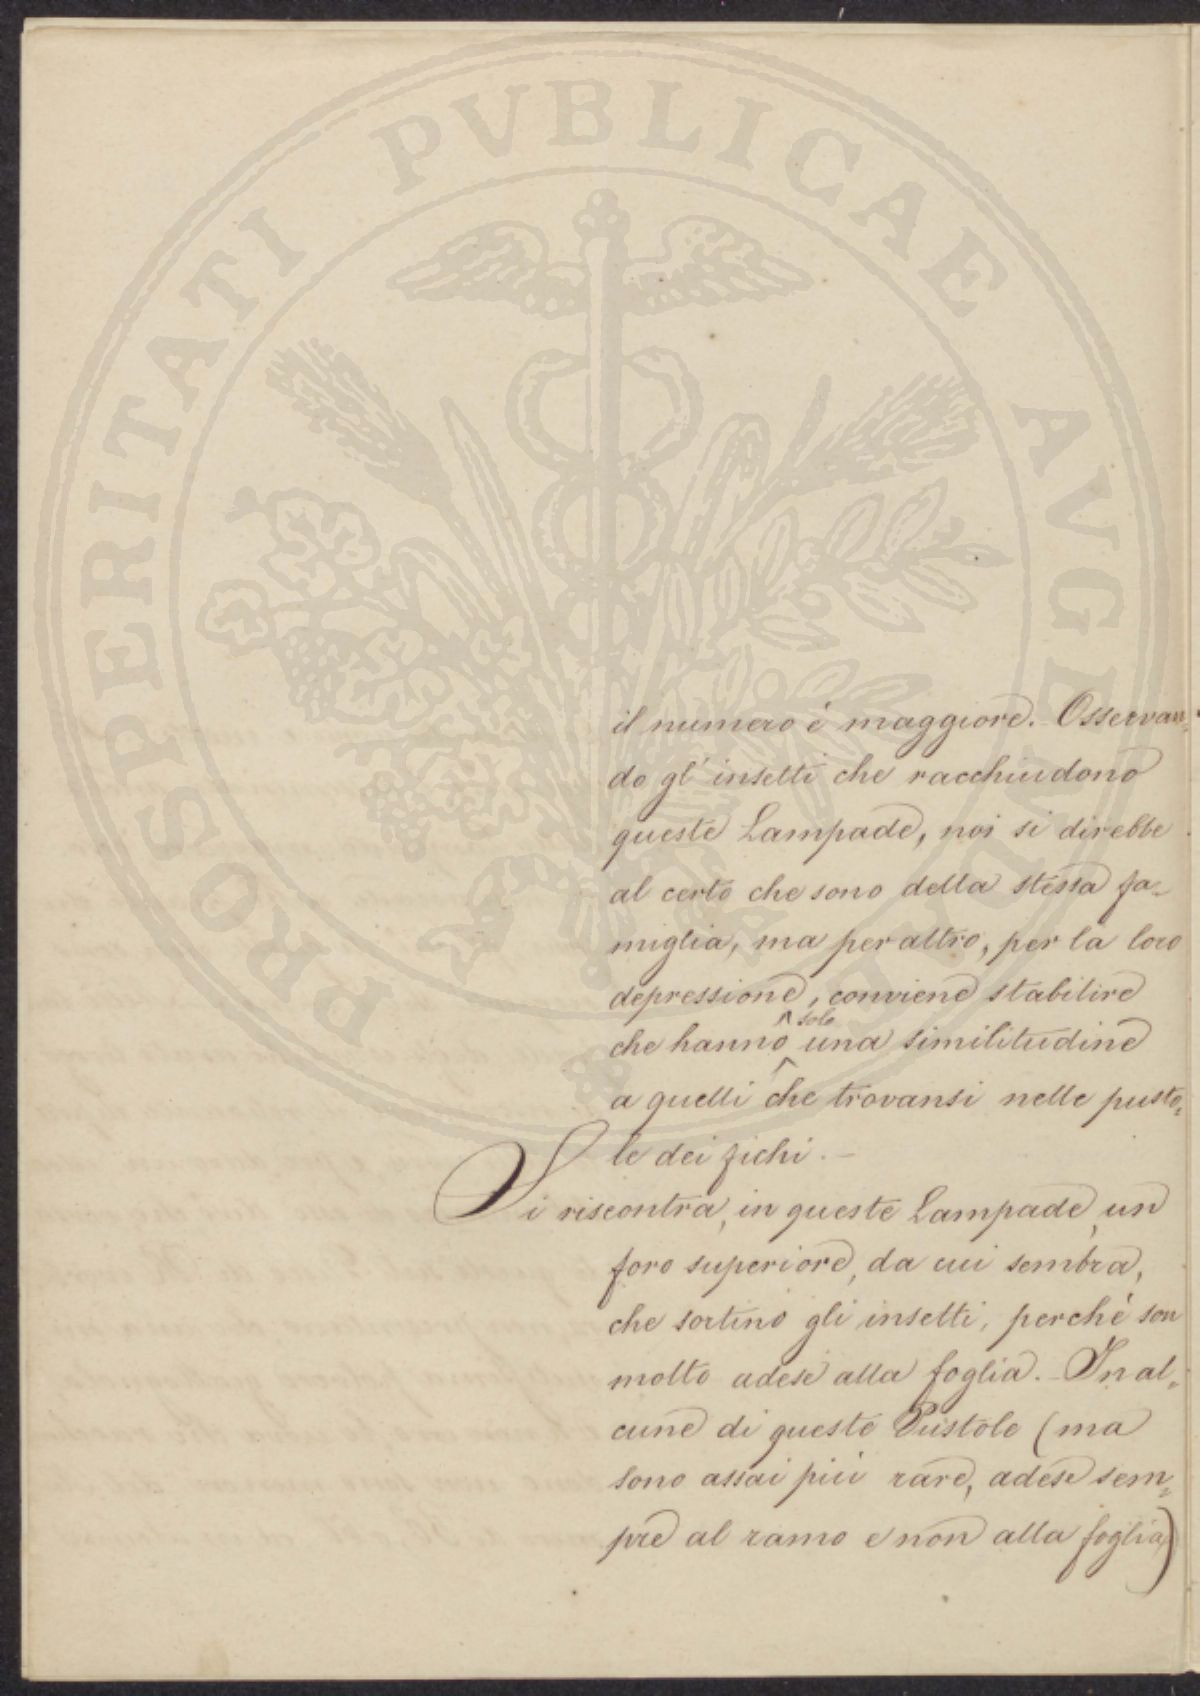 PROSPERITATI PVBLICAE AVGENDAE
il numero é maggiore. Osservan=
do gl' insetti che racchiudono
queste Lampade, noi si direbbe
al certo che sono della stessa fa=
miglia, ma per altro, per la loro
depressione, conviene stabilire
che hanno solo una similitudine
a quelli che trovansi nelle pusto=
le dei fichi. –
Si riscontra, in queste Lampade, un
foro superiore, da cui sembra,
che sortino gli insetti, perchè son
molto adese alla foglia. – In al=
cune di queste Pustole (ma
sono assai più rare, adese sem=
pre al ramo e non alla foglia)